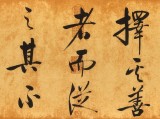 擇其善
者而從
之其不